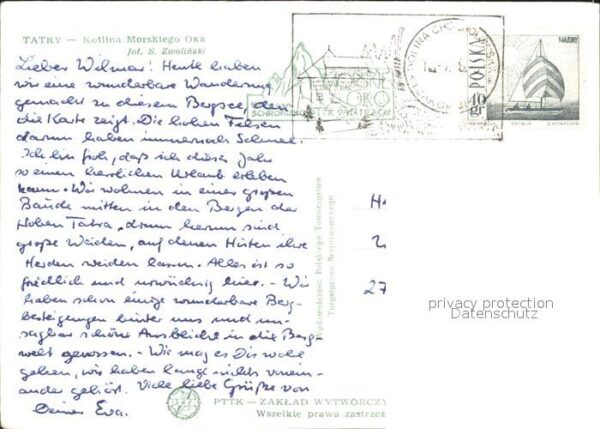 TATRY — Kotlina Morskiego Oka
fot. S. Zwoliński
Lieber Wilmar! Heute haben
wir eine wunderbare Wanderung
gemacht zu diesem Bergsee, den
die Karte zeigt. Die hohen Felsen
darum haben immer noch Schnee.
Ich bin froh, daß ich dieses Jahr
so einen herrlichen Urlaub erleben
kann. Wir wohnen in einer großen
Baude mitten in den Bergen der
Hohen Tatra, drum herum sind
große Weiden, auf denen Hirten ihre
Herden weiden lassen. Alles ist so
friedlich und urwüchsig hier. - Wir
haben schon einige wunderbare Berg-
besteigungen hinter uns und un-
sagbar schöne Ausblicke in die Berg-
welt genossen. - Wie mag es Dir wohl
gehen, wir haben lange nichts vonein-
ander gehört. Viele liebe Grüße von
Deiner Eva.
MORSKIE
OKO
SCHRONISKO PTTK
POLSKA
10
gr
MARZY
Wydawnictwo Polskiego Towarzystwa
Turystyczno Krajoznawczego
27
privacy protection
Datenschutz
PTTK — ZAKŁAD WYTWÓRCZY
Wszelkie prawa zastrzeż